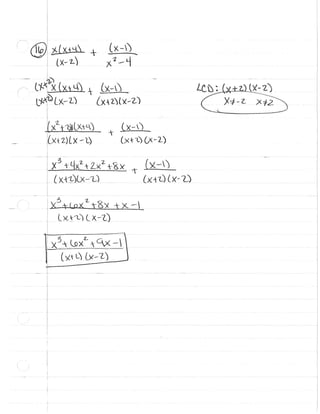 (16) x(x+4)/(x-2) + (x-1)/(x²-4)
(x+2) x(x+4)/(x+2)(x-2) + (x-1)/(x+2)(x-2) LCD: (x+2)(x-2)
x≠-2 x≠2
(x²+2x)(x+4)/(x+2)(x-2) + (x-1)/(x+2)(x-2)
x³+4x²+2x²+8x/(x+2)(x-2) + (x-1)/(x+2)(x-2)
x³+6x²+8x+x-1/(x+2)(x-2)
x³+6x²+9x-1/(x+2)(x-2)